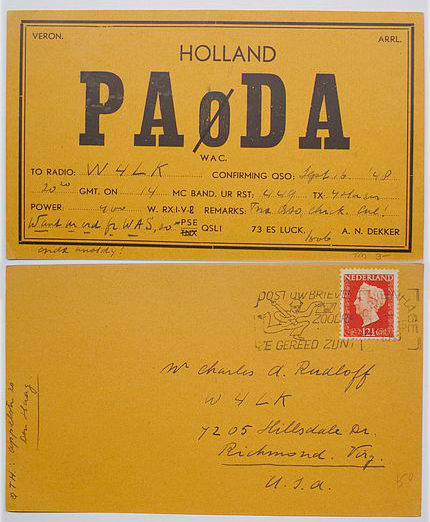 VERON.
ARRL.
HOLLAND
PAØDA
WAC.
TO RADIO: W4LK CONFIRMING QSO: Sept 16. '48
20 GMT. ON 14 MC BAND. UR RST: 449 TX:
POWER: W. RX: 1-V-2 REMARKS: Tnx QSO, Chuk. Cul!
Want ur crd for W.A.S, so PSE TNX QSLI 73 ES LUCK, A. N. DEKKER
POST UW BRIEVEN
ZODRA
ZE GEREED ZIJN!
NEDERLAND
12½
Mr Charles A. Rudloff
W 4 LK
7205 Hillsdale Dr.
Richmond. Virg.
U.S.A.
QTH: 20
Den Haag